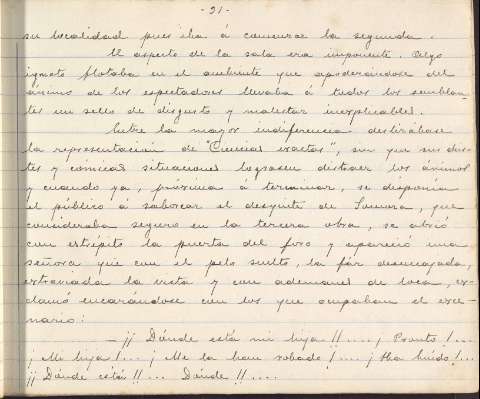 - 21 -
su localidad pues iba á comenzar la segunda.
El aspecto de la sala era imponente. Algo
ignoto flotaba en el ambiente que apoderándose del
ánimo de los espectadores llevaba á todos los semblan-
tes un sello de disgusto y malestar inexplicables.
Entre la mayor indiferencia deslizábase
la representación de "Ciencias exactas", sin que sus chis-
tes y cómicas situaciones lograsen distraer los ánimos
y cuando ya, próxima á terminar, se disponía
el público á saborear el desquite de Lumara, que
consideraba seguro en la tercera obra, se abrió
con estrépito la puerta del foro y apareció una
señora que con el pelo suelto, la faz desencajada,
extraviada la vista y con ademanes de loca, ex-
clamó encarándose con los que ocupaban el esce-
nario:
- ¡¡ Dónde está mi hija !! .... ¡ Pronto ! ...
¡ Mi hija ! ... ¡ Me la han robado ! .... ¡ Ha huído ! ...
¡¡ Dónde está !! ... Dónde !! ....